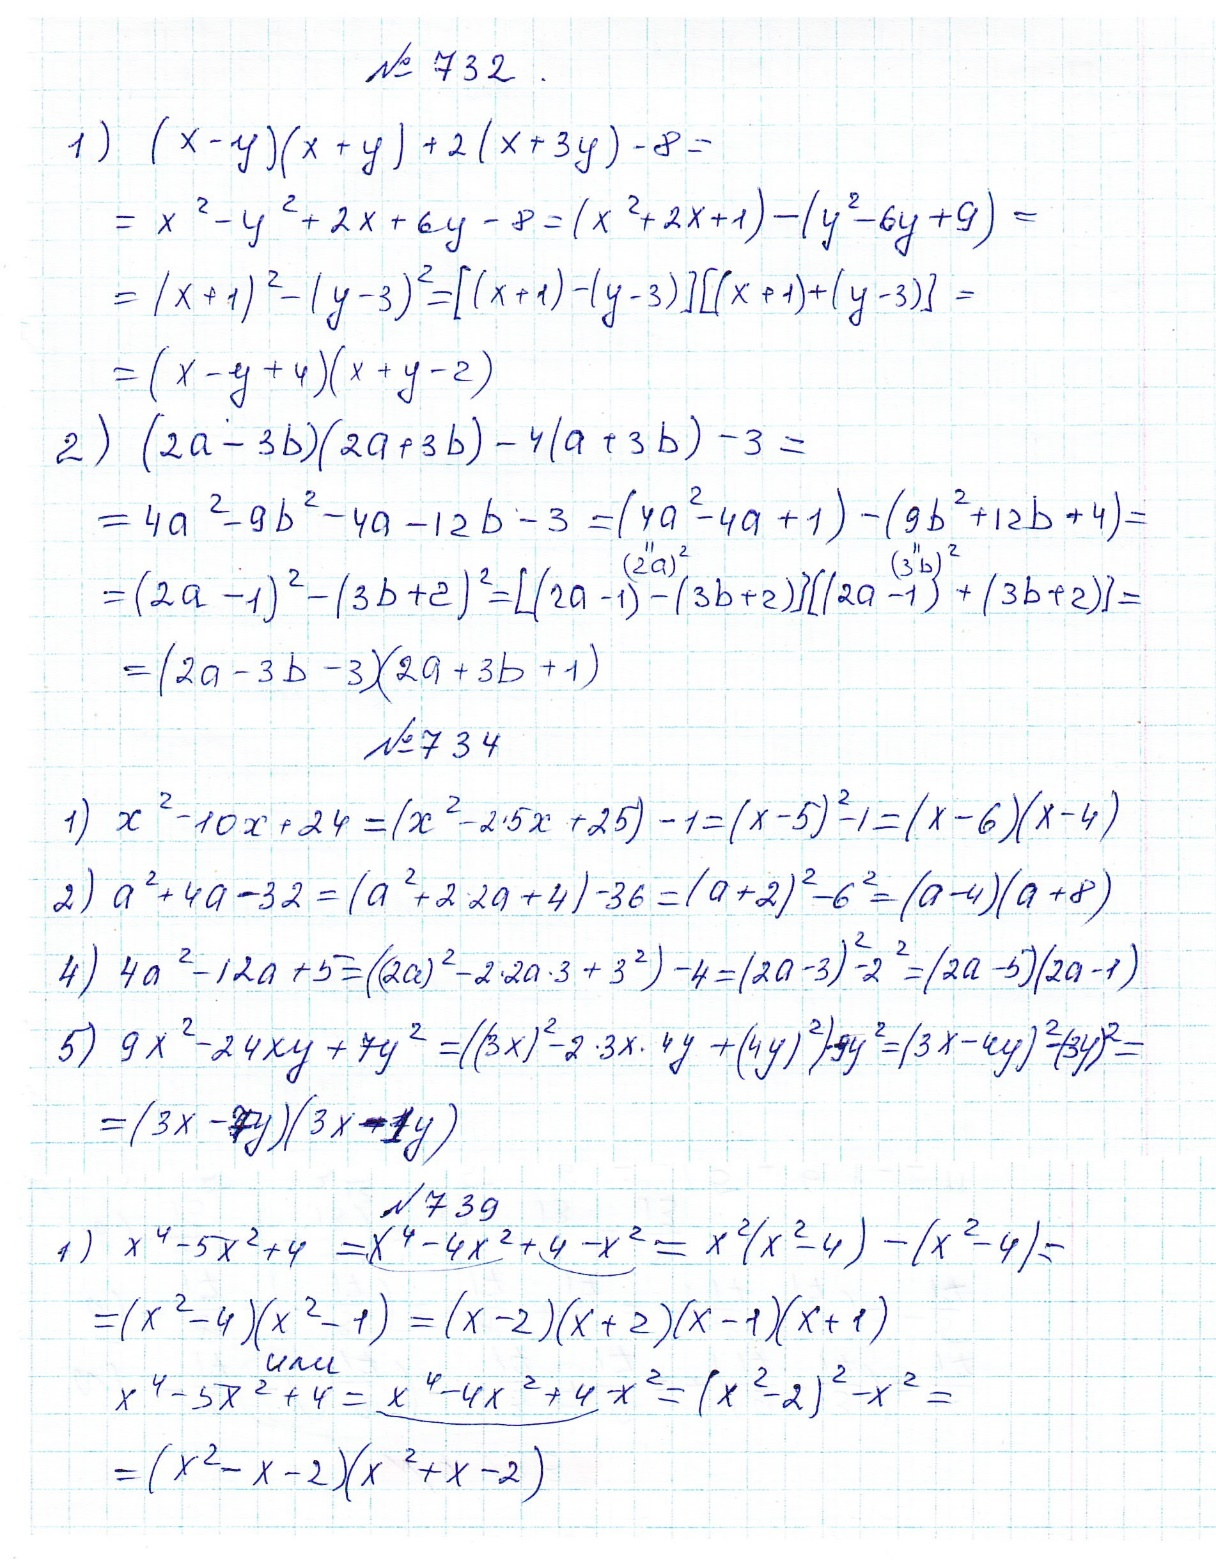 № 732.
1) (x-y)(x+y)+2(x+3y)-8=
= x²-y²+2x+6y-8=(x²+2x+1)-(y²-6y+9)=
=(x+1)²-(y-3)²=[(x+1)-(y-3)][(x+1)+(y-3)]=
=(x-y+4)(x+y-2)
2) (2a-3b)(2a+3b)-4(a+3b)-3=
=4a²-9b²-4a-12b-3=(4a²-4a+1)-(9b²+12b+4)=
" (2a)² " (3b)²
=(2a-1)²-(3b+2)²=[(2a-1)-(3b+2)][(2a-1)+(3b+2)]=
=(2a-3b-3)(2a+3b+1)
№734
1) x²-10x+24=(x²-2·5x+25)-1=(x-5)²-1=(x-6)(x-4)
2) a²+4a-32=(a²+2·2a+4)-36=(a+2)²-6²=(a-4)(a+8)
4) 4a²-12a+5=((2a)²-2·2a·3+3²)-4=(2a-3)²-2²=(2a-5)(2a-1)
5) 9x²-24xy+7y²=((3x)²-2·3x·4y+(4y)²)-9y²=(3x-4y)²-(3y)²=
=(3x-7y)(3x-1y)
№739
1) x⁴-5x²+4=x⁴-4x²+4-x²=x²(x²-4)-(x²-4)=
=(x²-4)(x²-1)=(x-2)(x+2)(x-1)(x+1)
или
x⁴-5x²+4=x⁴-4x²+4-x²=(x²-2)²-x²=
=(x²-x-2)(x²+x-2)